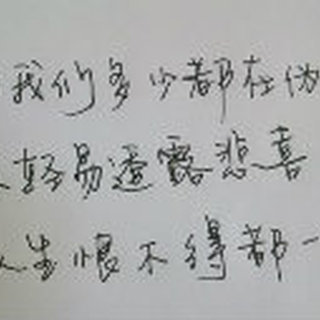 我们多少都在伪
轻易透露悲喜
人生恨不得都一